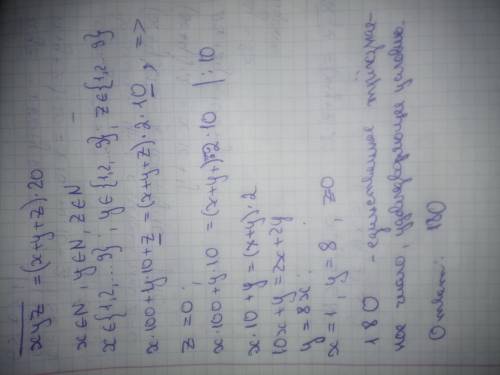 xyz = (x+y+z)·20
x∈N, y∈N, z∈N
x∈{1,2,...9}, y∈{1,2,...9}, z∈{1,2...9}
x·100+y·10+z=(x+y+z)·2·10, =>
z=0;
x·100+y·10=(x+y+)·2·10 |:10
x·10+y=(x+y)·2
10x+y=2x+2y
y=8x.
x=1, y=8, z=0
180 - единственное трёхзнач-
ное число, удовлетворяющее условию.
Ответ: 180